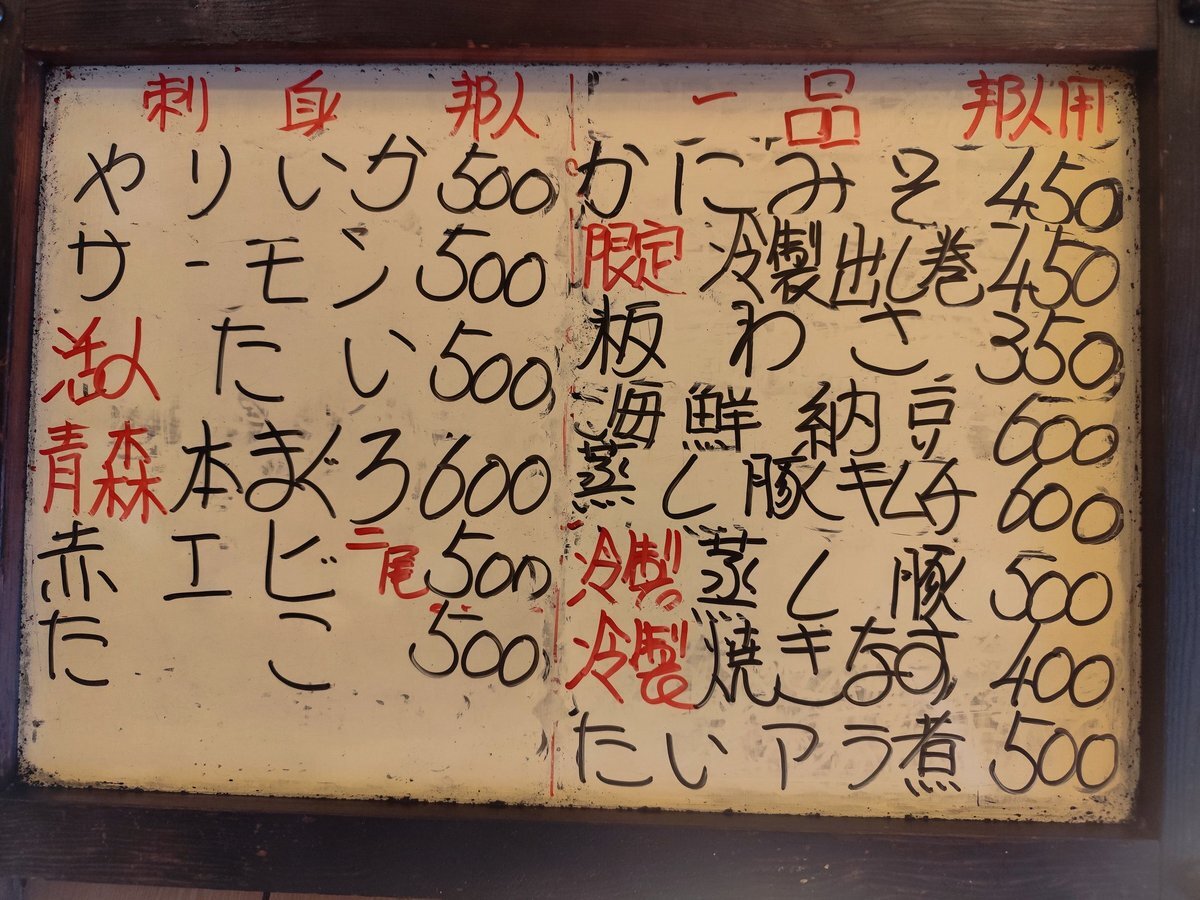 刺身 邦人
やりいか 500
サーモン 500
活〆 たい 500
青森 本まぐろ 600
赤エビ 二尾 500
たこ 500
一品 邦人用
かにみそ 450
限定 冷製出し巻 450
板わさ 350
海鮮納豆 600
蒸し豚キムチ 600
冷製 蒸し豚 500
冷製 焼きなす 400
たいアラ煮 500